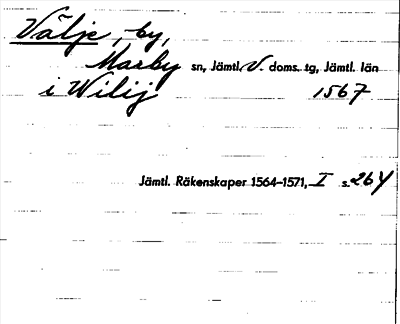 Välje, by,
Marby sn, Jämtl. V. doms. tg, Jämtl. län
i Wilij 1567
Jämtl. Räkenskaper 1564-1571, I s. 264